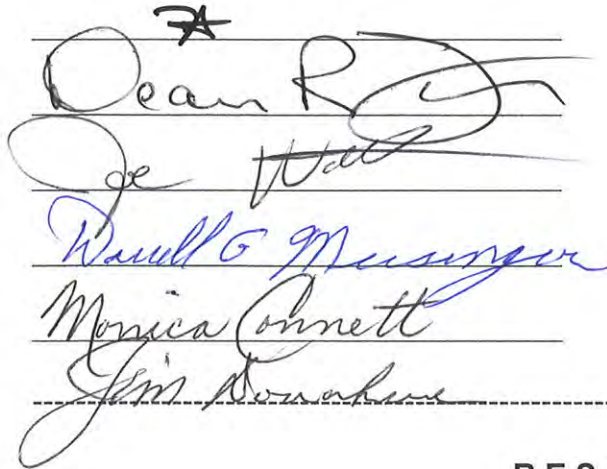 Dean R
Joe
Darrell G Meisinger
Monica Connett
Jim Donahue